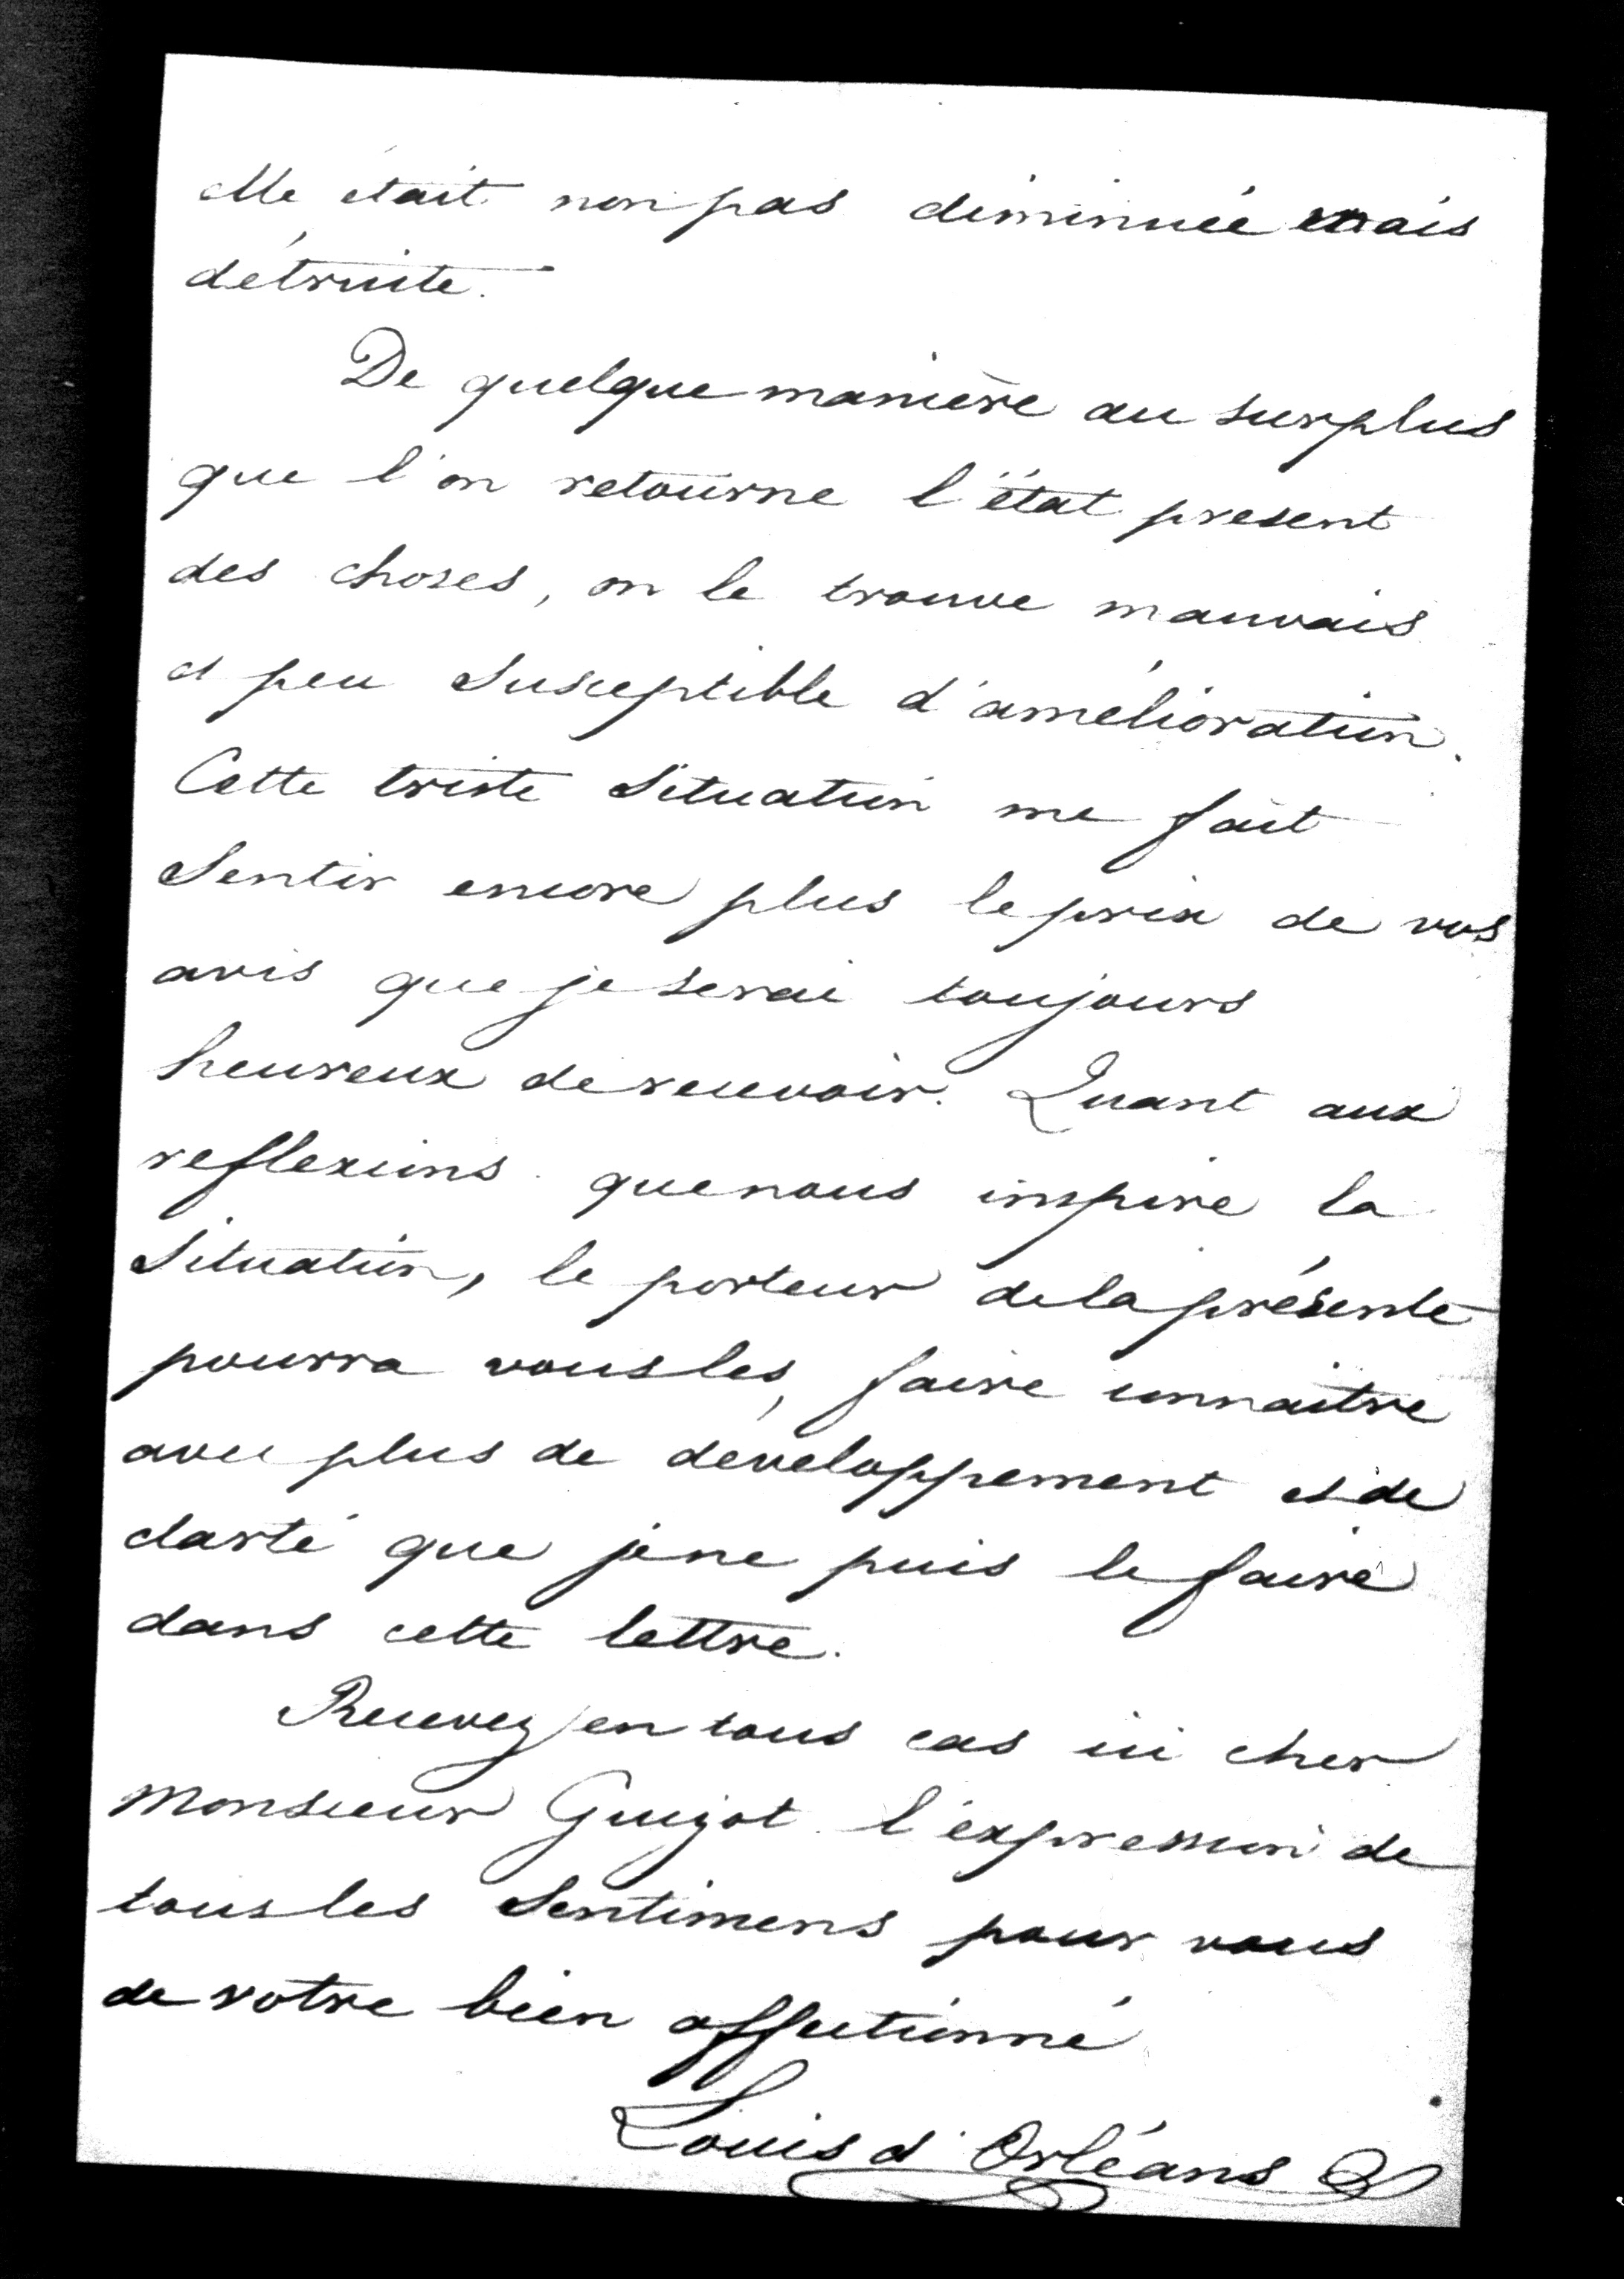 elle était non pas diminuée mais
détruite.
De quelque manière au surplus
que l'on retourne l'état present
des choses, on le trouve mauvais
et peu susceptible d'amélioration.
Cette triste situation me fait
sentir encore plus le prix de vos
avis que je serai toujours
heureux de recevoir. Quant aux
reflexions que nous inspire la
situation, le porteur de la présente
pourra vous les, faire connaitre
avec plus de developpement et de
clarté que je ne puis le faire
dans cette lettre.
Recevez en tous cas ici cher
Monsieur Guizot l'expression de
tous les sentimens pour vous
de votre bien affectionné
Louis d'Orléans